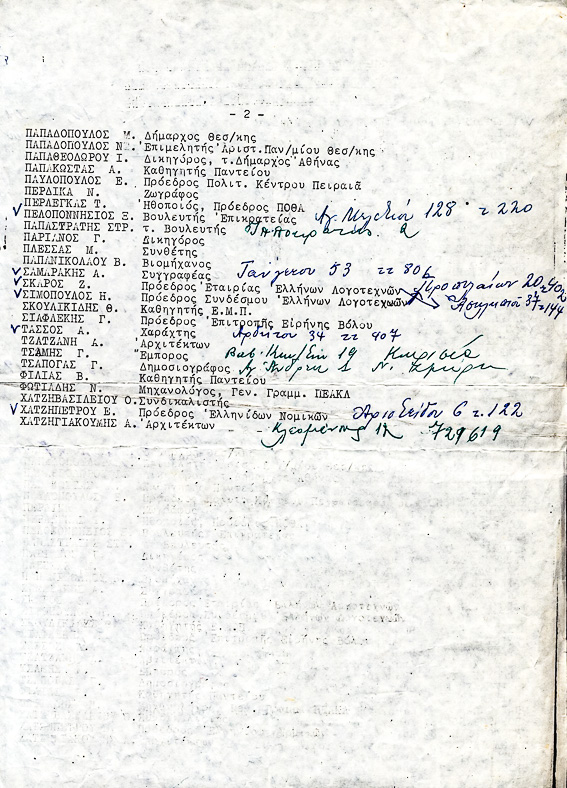 - 2 -
ΠΑΠΑΔΟΠΟΥΛΟΣ Μ. Δήμαρχος Θεσ/κης
ΠΑΠΑΔΟΠΟΥΛΟΣ Ν. Ἐπιμελητής Ἀριστ.Παν/μίου Θεσ/κης
ΠΑΠΑΘΕΟΔΩΡΟΥ Ι. Δικηγόρος, τ.Δήμαρχος Ἀθήνας
ΠΑΠΑΚΩΣΤΑΣ Α. Καθηγητής Παντείου
ΠΑΥΛΟΠΟΥΛΟΣ Ε. Πρόεδρος Πολιτ. Κέντρου Πειραιᾶ
ΠΕΡΔΙΚΑ Ν. Ζωγράφος
ΠΕΡΛΕΓΚΑΣ Τ. Ἠθοποιός, Πρόεδρος ΠΟΘΑ
ΠΕΛΟΠΟΝΝΗΣΙΟΣ Ξ. Βουλευτής Ἐπικρατείας 128 τ 220
ΠΑΠΑΣΤΡΑΤΗΣ ΣΤΡ. τ. Βουλευτής
ΠΑΡΙΑΝΟΣ Γ. Δικηγόρος
ΠΛΕΣΣΑΣ Μ. Συνθέτης
ΠΑΠΑΝΙΚΟΛΑΟΥ Β. Βιομήχανος
ΣΑΜΑΡΑΚΗΣ Α. Συγγραφέας 53 ττ 806
ΣΚΑΡΟΣ Ζ. Πρόεδρος Ἑταιρίας Ἑλλήνων Λογοτεχνῶν
ΣΙΜΟΠΟΥΛΟΣ Η. Πρόεδρος Συνδέσμου Ἑλλήνων Λογοτεχνῶν
ΣΚΟΥΛΙΚΙΔΗΣ Θ. Καθηγητής Ε.Μ.Π.
ΣΤΑΦΛΕΚΗΣ Γ. Πρόεδρος Ἐπιτροπῆς Εἰρήνης Βόλου
ΤΑΣΣΟΣ Α. Χαράκτης Ἀρδηττου 34 ττ 407
ΤΖΑΤΖΑΝΗ Α. Ἀρχιτέκτων
ΤΣΑΜΗΣ Γ. Ἔμπορος 19 Κηφισιά
ΤΣΑΠΟΓΑΣ Γ. Δημοσιογράφος Ν. Σμύρνη
ΦΙΛΙΑΣ Β. Καθηγητής Παντείου
ΦΩΤΙΑΔΗΣ Ν. Μηχανολόγος, Γεν. Γραμμ. ΠΕΑΚΛ
ΧΑΤΖΗΒΑΣΙΛΕΙΟΥ Ο. Συνδικαλιστής
ΧΑΤΖΗΠΕΤΡΟΥ Ε. Πρόεδρος Ἑλληνίδων Νομικῶν Ἀριστείδου 6 τ. 122
ΧΑΤΖΗΓΙΑΚΟΥΜΗΣ Α. Ἀρχιτέκτων - - Κλεομένους 729619